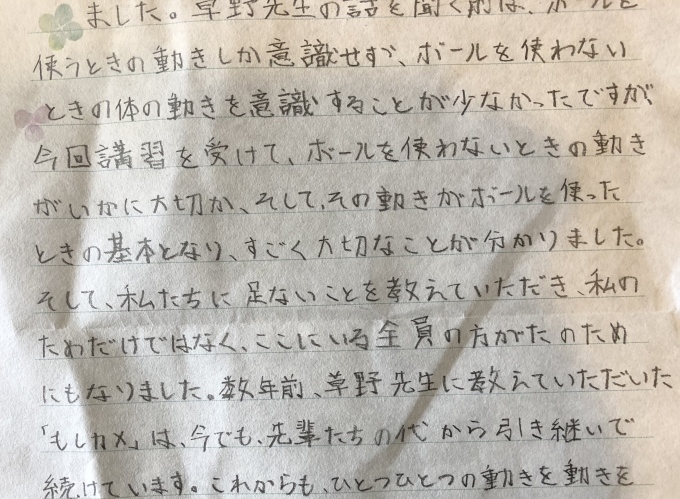 ました。草野先生の話を聞く前は、ボールを
使うときの動きしか意識せず、ボールを使わない
ときの体の動きを意識することが少なかったですが、
今回講習を受けて、ボールを使わないときの動き
がいかに大切か、そして、その動きがボールを使った
ときの基本となり、すごく大切なことが分かりました。
そして、私たちに足ないことを教えていただき、私の
ためだけではなく、ここにいる全員の方がたのため
にもなりました。数年前、草野先生に教えていただいた
「もしカメ」は、今でも、先輩たちの代から引き継いで
続けています。これからも、ひとつひとつの動きを動きを